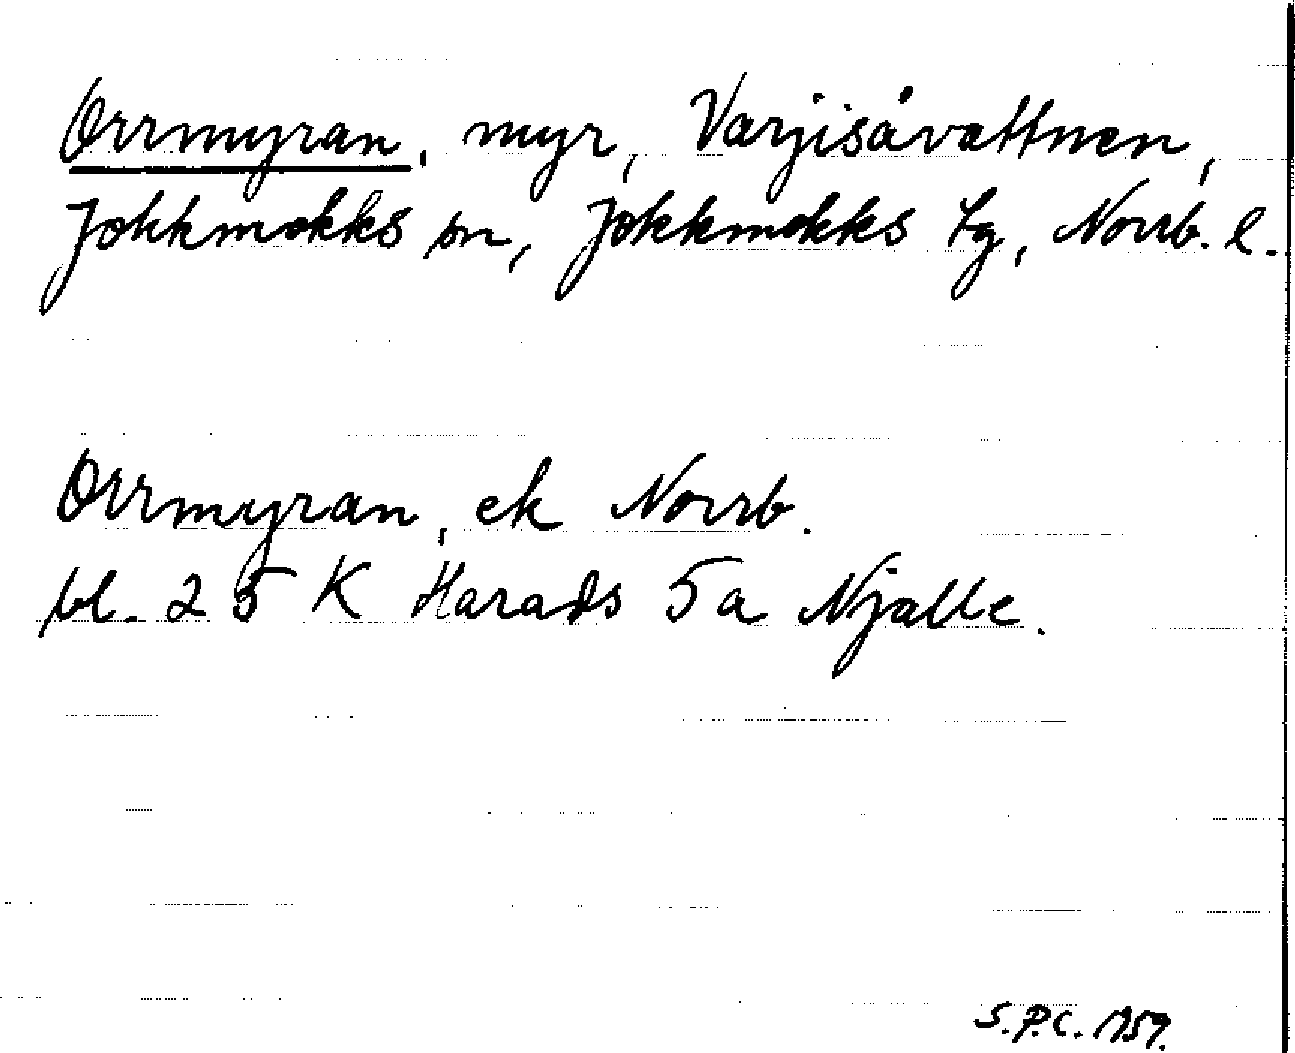 Orrmyran, myr, Varjisåvattnen,
Jokkmokks sn, Jokkmokks tg, Norrb. l.
Orrmyran, ek Norrb.
bl. 25 K Harads 5a Njalle.
S.P.C. 1959.